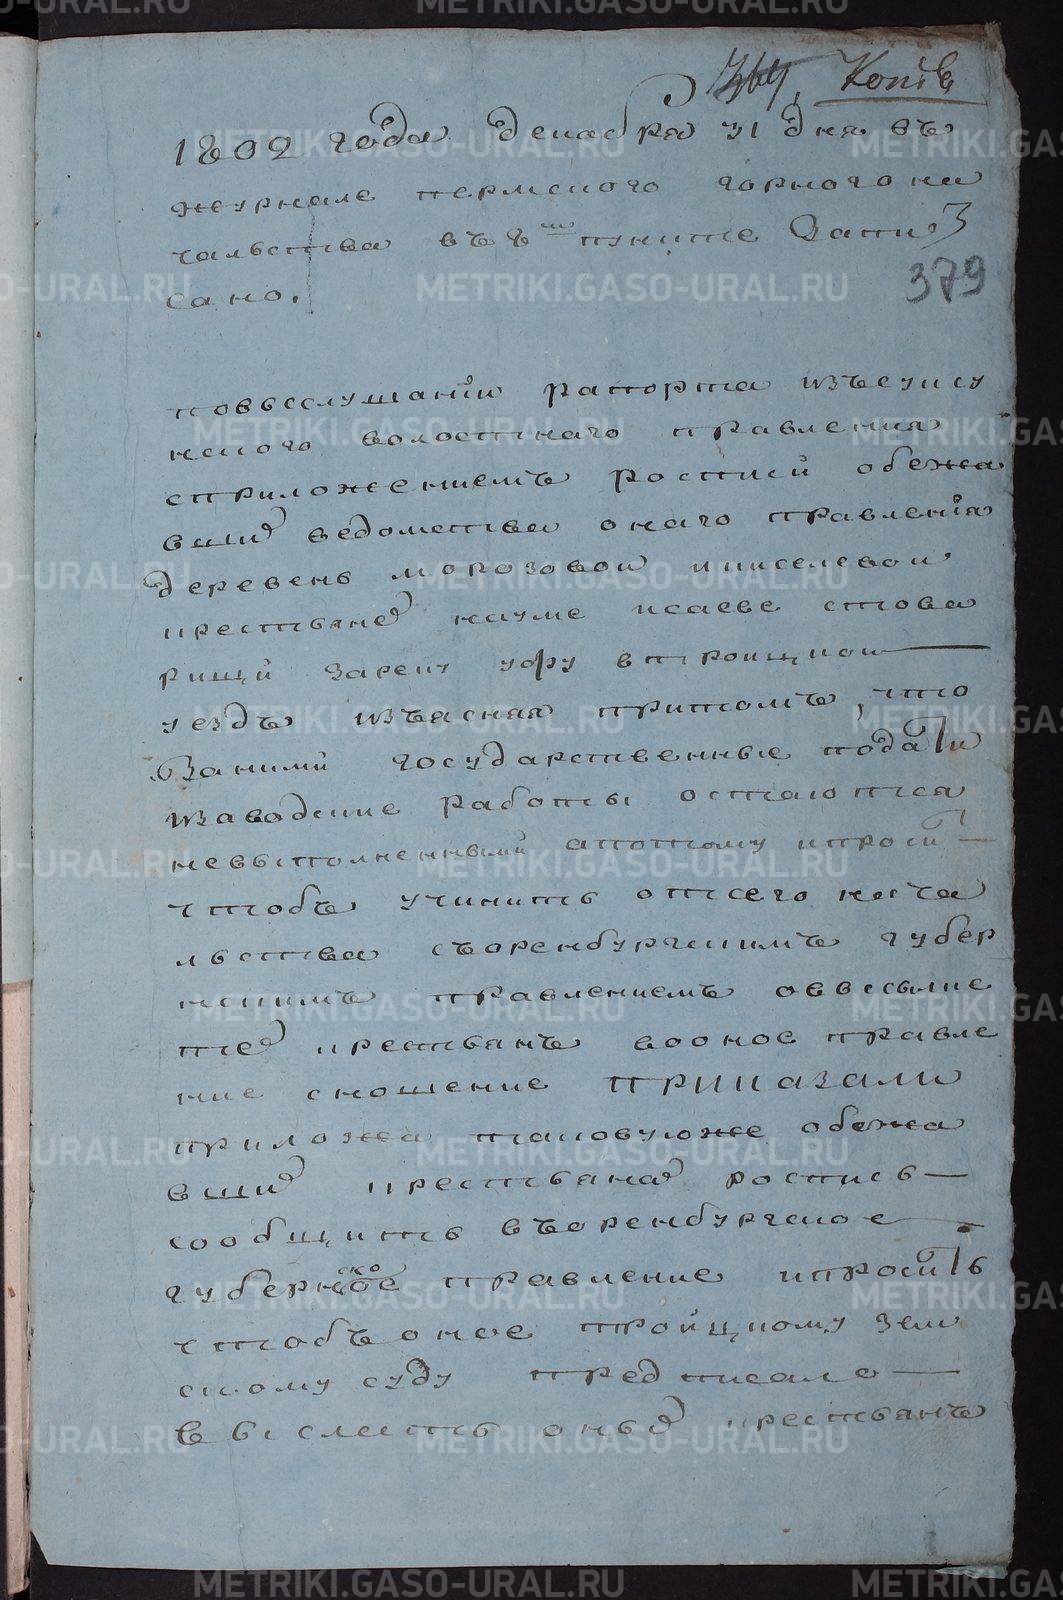 369. Копія
1802 года декабря 31 дня въ
журнале пермского горного на
чальства въ 8м пункте Запи
сано.
379
повыслушаніи рапорта изъсуксу
нского волостнаго правления
сприложениемъ росписи обежа
вших ведомства онаго правленія
деревень морозовой икиселевой
крестьянех науме исаеве стова
рищи зареку уфу втроицкой
уездъ изъясняя притомъ, что
Заними государственные подати
изаводские работы остаются
невыполненными апотому ипросит
чтобъ учинить отсего нача
льства съоренбургскимъ губер
нскимъ правлениемъ овысылке
тех крестьянъ вооное правле
ние сношение приказали
приложа таковуюже обежа
вших крестьянах роспись
сообщить въоренбургское
губернское правление ипросить
чтобъ оное троицкому зем
скому суду предписало
Выслать оных крестьянъ
METRIKI.GASO-URAL.RU